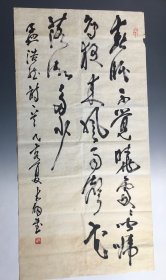 春眠不覺曉處〻聞啼
鳥夜来風雨聲花
落知多少
孟浩然詩一首 夏 書